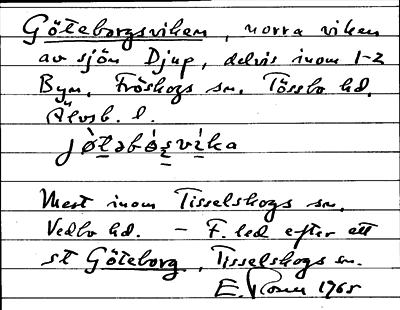 Göteborgsviken, norra viken
av sjön Djup, delvis inom 1-2
Byn, Fröskogs sn. Tössbo hd.
Älvsb. l.
jǿtəbórsvíka
Mest inom Tisselskogs sn.
Vedbo hd. – F. led efter ett
st Göteborg, Tisselskogs sn.
E. 1965